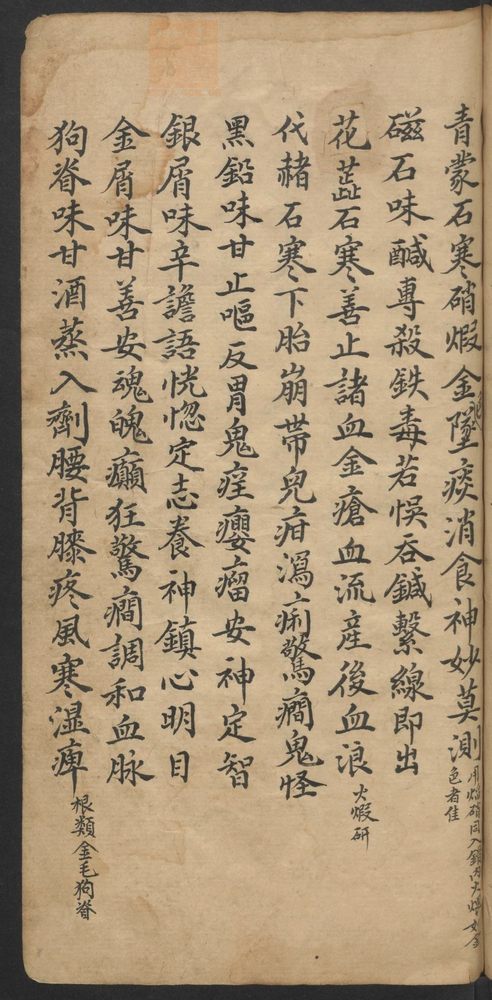 青蒙石寒硝煆金色墜痰消食神妙莫測用焰硝同入鍋內火煆如金色者佳
磁石味醎專殺鉄毒若悞吞鍼繫線即出
花蕋石寒善止諸血金瘡血流產後血浪火煆研
代赭石寒下胎崩帶兒疳瀉痢驚癇鬼怪
黑鉛味甘止嘔反胃鬼疰癭瘤安神定智
銀屑味辛譫語恍惚定志養神鎮心明目
金屑味甘善安魂魄癲狂驚癇調和血脉
狗脊味甘酒蒸入劑腰背膝疼風寒濕痺根類金毛狗脊